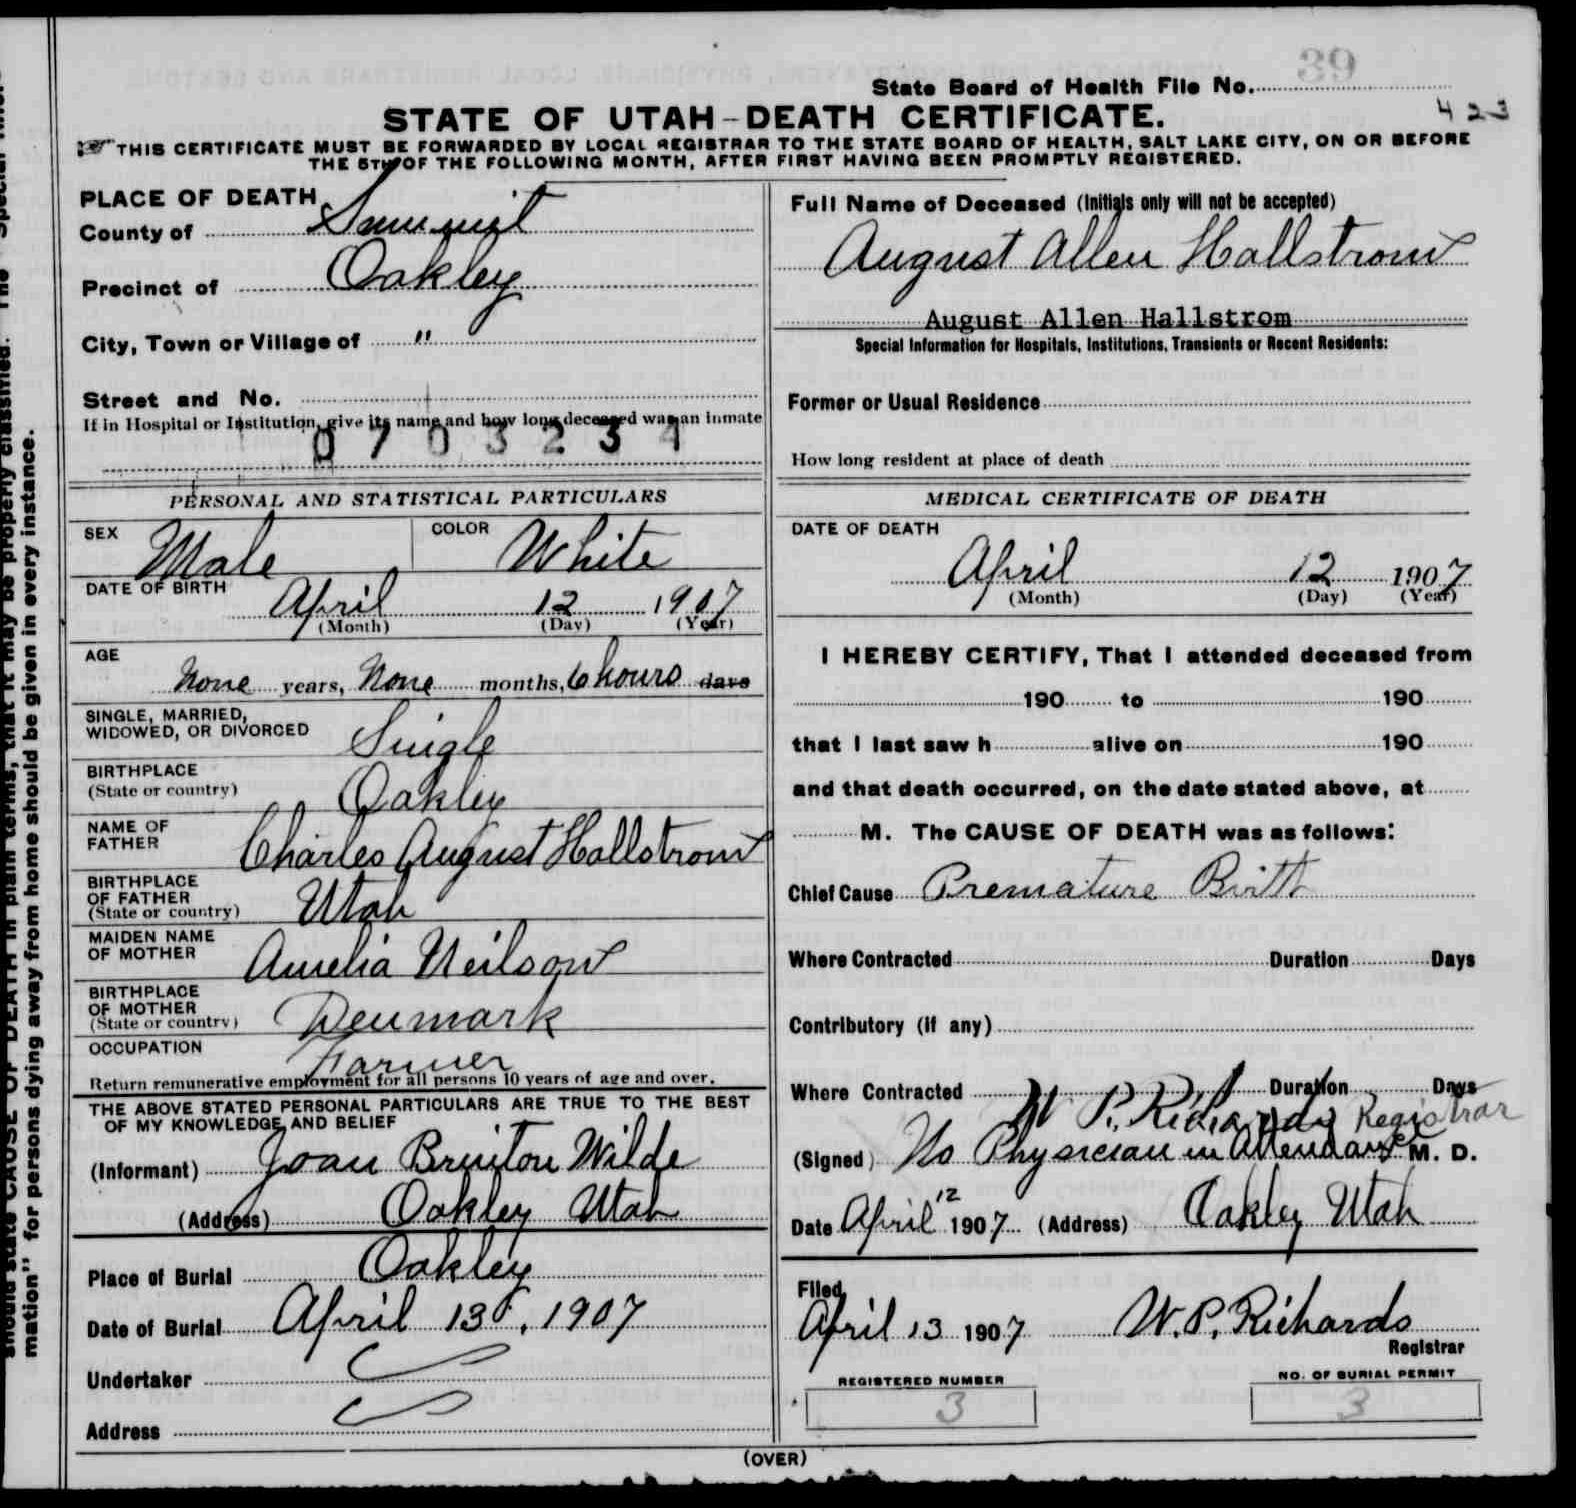 39
State Board of Health File No.
423
STATE OF UTAH-DEATH CERTIFICATE.
THIS CERTIFICATE MUST BE FORWARDED BY LOCAL REGISTRAR TO THE STATE BOARD OF HEALTH, SALT LAKE CITY, ON OR BEFORE
THE 5TH OF THE FOLLOWING MONTH, AFTER FIRST HAVING BEEN PROMPTLY REGISTERED.
PLACE OF DEATH
County of Summit
Precinct of Oakley
City, Town or Village of "
Street and No.
If in Hospital or Institution, give its name and how long deceased was an inmate
0703234
PERSONAL AND STATISTICAL PARTICULARS
SEX Male COLOR White
DATE OF BIRTH April 12 1907
(Month) (Day) (Year)
AGE
None years, None months, 6 hours days
SINGLE, MARRIED,
WIDOWED, OR DIVORCED Single
BIRTHPLACE
(State or country) Oakley
NAME OF
FATHER Charles August Hallstrom
BIRTHPLACE
OF FATHER
(State or country) Utah
MAIDEN NAME
OF MOTHER Amelia Neilson
BIRTHPLACE
OF MOTHER
(State or country) Denmark
OCCUPATION Farmer
Return remunerative employment for all persons 10 years of age and over.
THE ABOVE STATED PERSONAL PARTICULARS ARE TRUE TO THE BEST
OF MY KNOWLEDGE AND BELIEF
(Informant) Joan Brinton Wilde
(Address) Oakley Utah
Place of Burial Oakley
Date of Burial April 13, 1907
Undertaker
Address
Full Name of Deceased (Initials only will not be accepted)
August Allen Hallstrom
August Allen Hallstrom
Special Information for Hospitals, Institutions, Transients or Recent Residents:
Former or Usual Residence
How long resident at place of death
MEDICAL CERTIFICATE OF DEATH
DATE OF DEATH
April 12 1907
(Month) (Day) (Year)
I HEREBY CERTIFY, That I attended deceased from
190 to 190
that I last saw h alive on 190
and that death occurred, on the date stated above, at
M. The CAUSE OF DEATH was as follows:
Chief Cause Premature Birth
Where Contracted Duration Days
Contributory (if any)
Where Contracted Duration Days
W. P. Richards Registrar
(Signed) No Physician in Attendance M. D.
Date April 12 1907 (Address) Oakley Utah
Filed
April 13 1907 W. P. Richards
Registrar
REGISTERED NUMBER NO. OF BURIAL PERMIT
3 3
(OVER)
mation" for persons dying away from home should be given in every instance.
should state CAUSE OF DEATH in plain terms, that it may be properly classified. The "Special